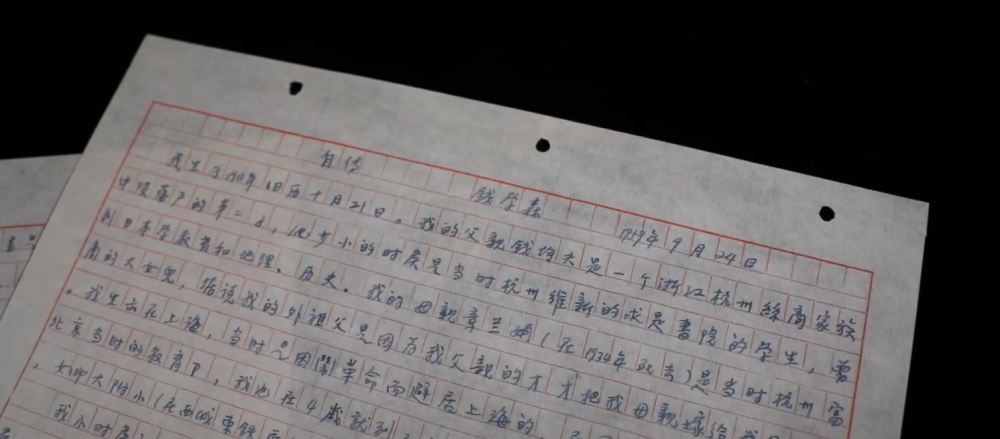 自传
钱学森
1959年9月24日
我生于1911年旧历十月21日。我的父親钱均夫是一个浙江杭州絲商家族
中没落户的第二子，他少小的时候是当时杭州維新的求是書院的学生，曾
到日本学教育和地理、历史。我的母親章兰娟（在1934年死去）是当时杭州富
商的大女兒，据说我的外祖父是因为我父親的才才把我母親嫁给
我生出在上海，当时因鬧革命而避居上海的
北京当时的教育P，我也在4歲就到
女师大附小（在西城東铁
我小时